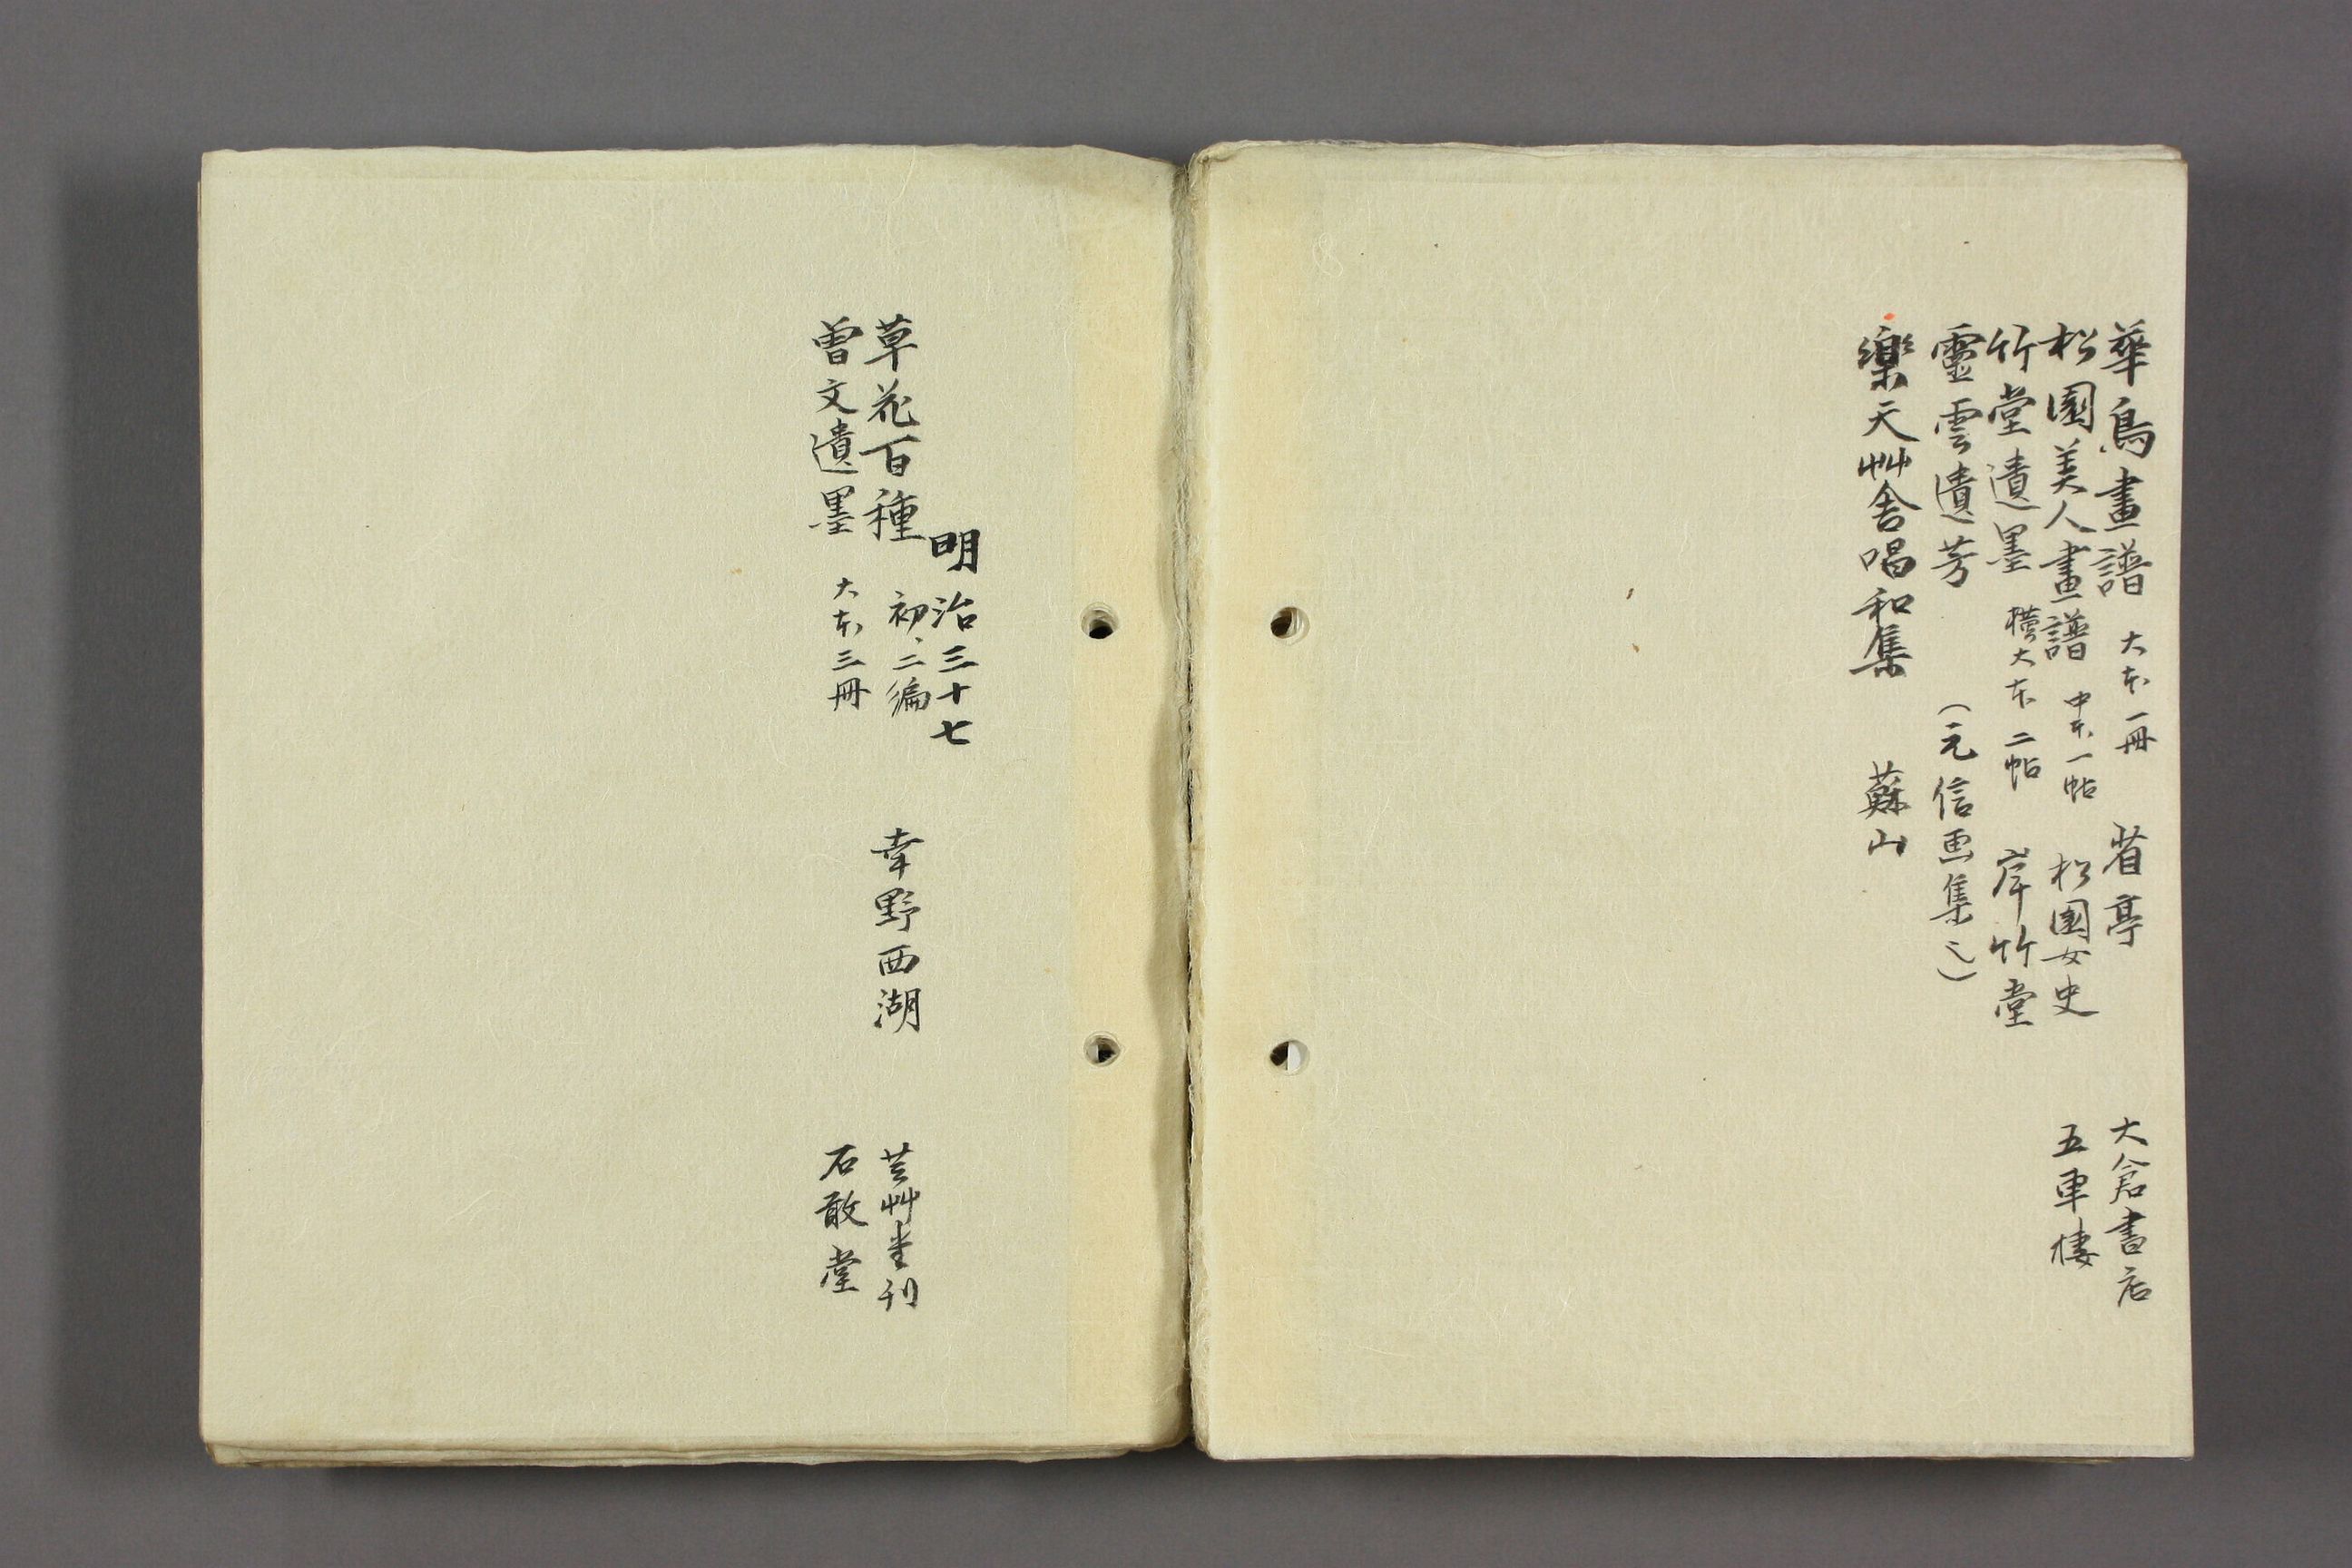 華鳥畫譜 大本一冊 省亭 大倉書店
松園美人畫譜 中本一帖 松園女史 五車樓
竹堂遺墨 横大本二帖 岸竹堂
靈雲遺芳 (元信画集)
樂天艸舎唱和集 蘇山
明治三十七
草花百種 初、二編 幸野西湖 芸艸堂刊
曽文遺墨 大本三冊 石敢堂